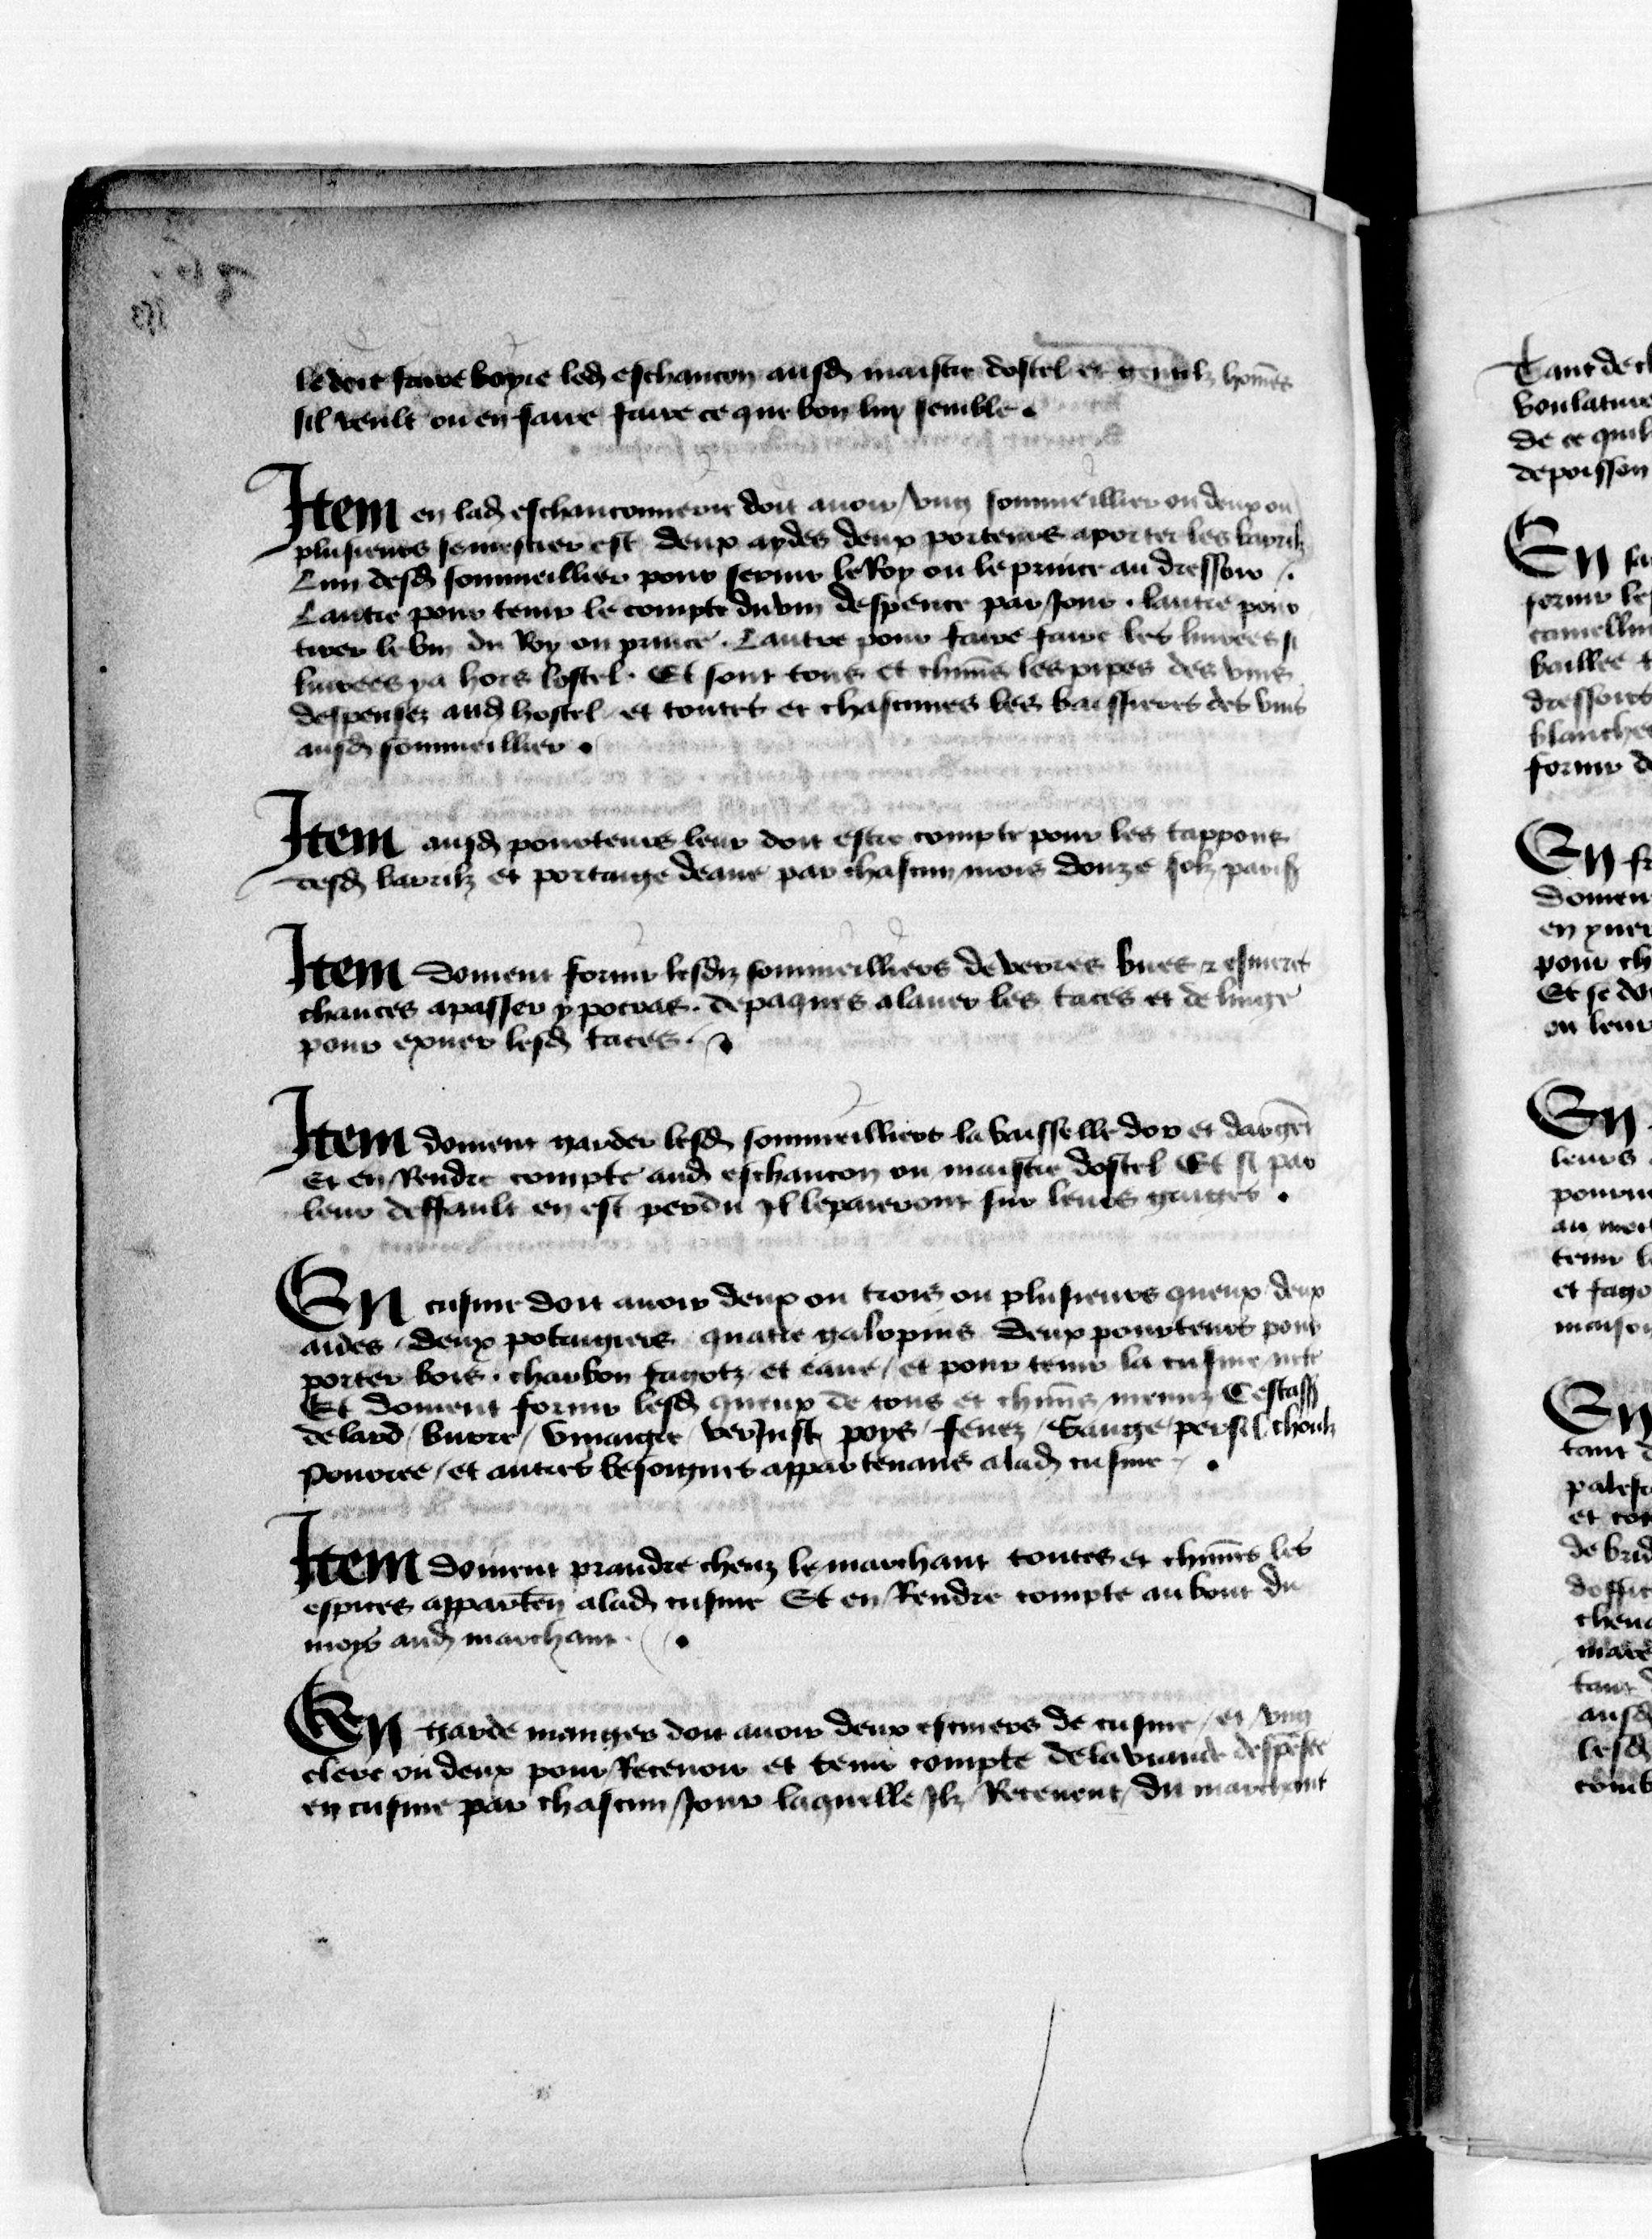 le doit faire boyre led eschancon ausd maistre dostel et gentilz homes
sil veult ou en faire faire ce que bon luy semble .
Item en lad eschanconnerie doit avoir ung sommeillier ou deux ou
plusieurs se mestier est deux aydes deux porteurs a porter les barilz
Lun desd sommeillier pour servir le Roy ou le prince au dressoir .
Lautre pour tenir le compte du vin despence par jour . lautre pour
tirer le vin du Roy ou prince . Lautre pour faire faire les livrees si
livrees y a hors lostel . Et sont tous et chuns les pipes des vins
despensez aud hostel et toutes et chascunes les baissieres des vins
ausd sommeillier .
Item ausd pourteurs leur doit estre compte pour les tappons
desd barilz et portaige deaue par chascun mois douze solz paris
Item doivent fornir lesdiz sommeilliers de verres buees
chances a passer ypocras . de paques a laver les taces et de linge
pour exuer lesd taces .
Item doivent garder lesd sommeilliers la vaisselle dor et dargent
Et en Rendre compte aud eschancon ou maistre dostel Et si par
leur deffault en est perdu Il le paieront sur leurs gaiges .
En cuisine doit avoir deux ou trois ou plusieurs queux deux
aides / deux potaigiers quatre galopins deux pourteurs pour
porter bois . charbon fagotz / et eaue / et pour tenir la cuisine nete
Et doivent fornir lesd queux de tous et chuns menuz Cestass
de lard / burre / vinaigre / verjust poys / feves / Sauge persil choulx
Pouree / et autres besoignes appartenans a lad cuisine .
Item doivent prandre cheuz le marchant toutes et chunes les
espices apparten a lad cuisine Et en Rendre compte au bout du
moys aud marchant .
En garde manger doit avoir deux escuiers de cuisine / et ung
clerc ou deux pour Recevoir et tenir compte de la viande despese
en cuisine par chascun jour laquelle Ilz Recevent du marchant
Tant de
voulature
de ce quil
de poisson
En
fornir les
baillee
dressoirs
blanches
fornir de
En
doivent
en yver
pour
Et se doi
ou leur
En
leurs
tenir
et fago
maison
En
tant
et